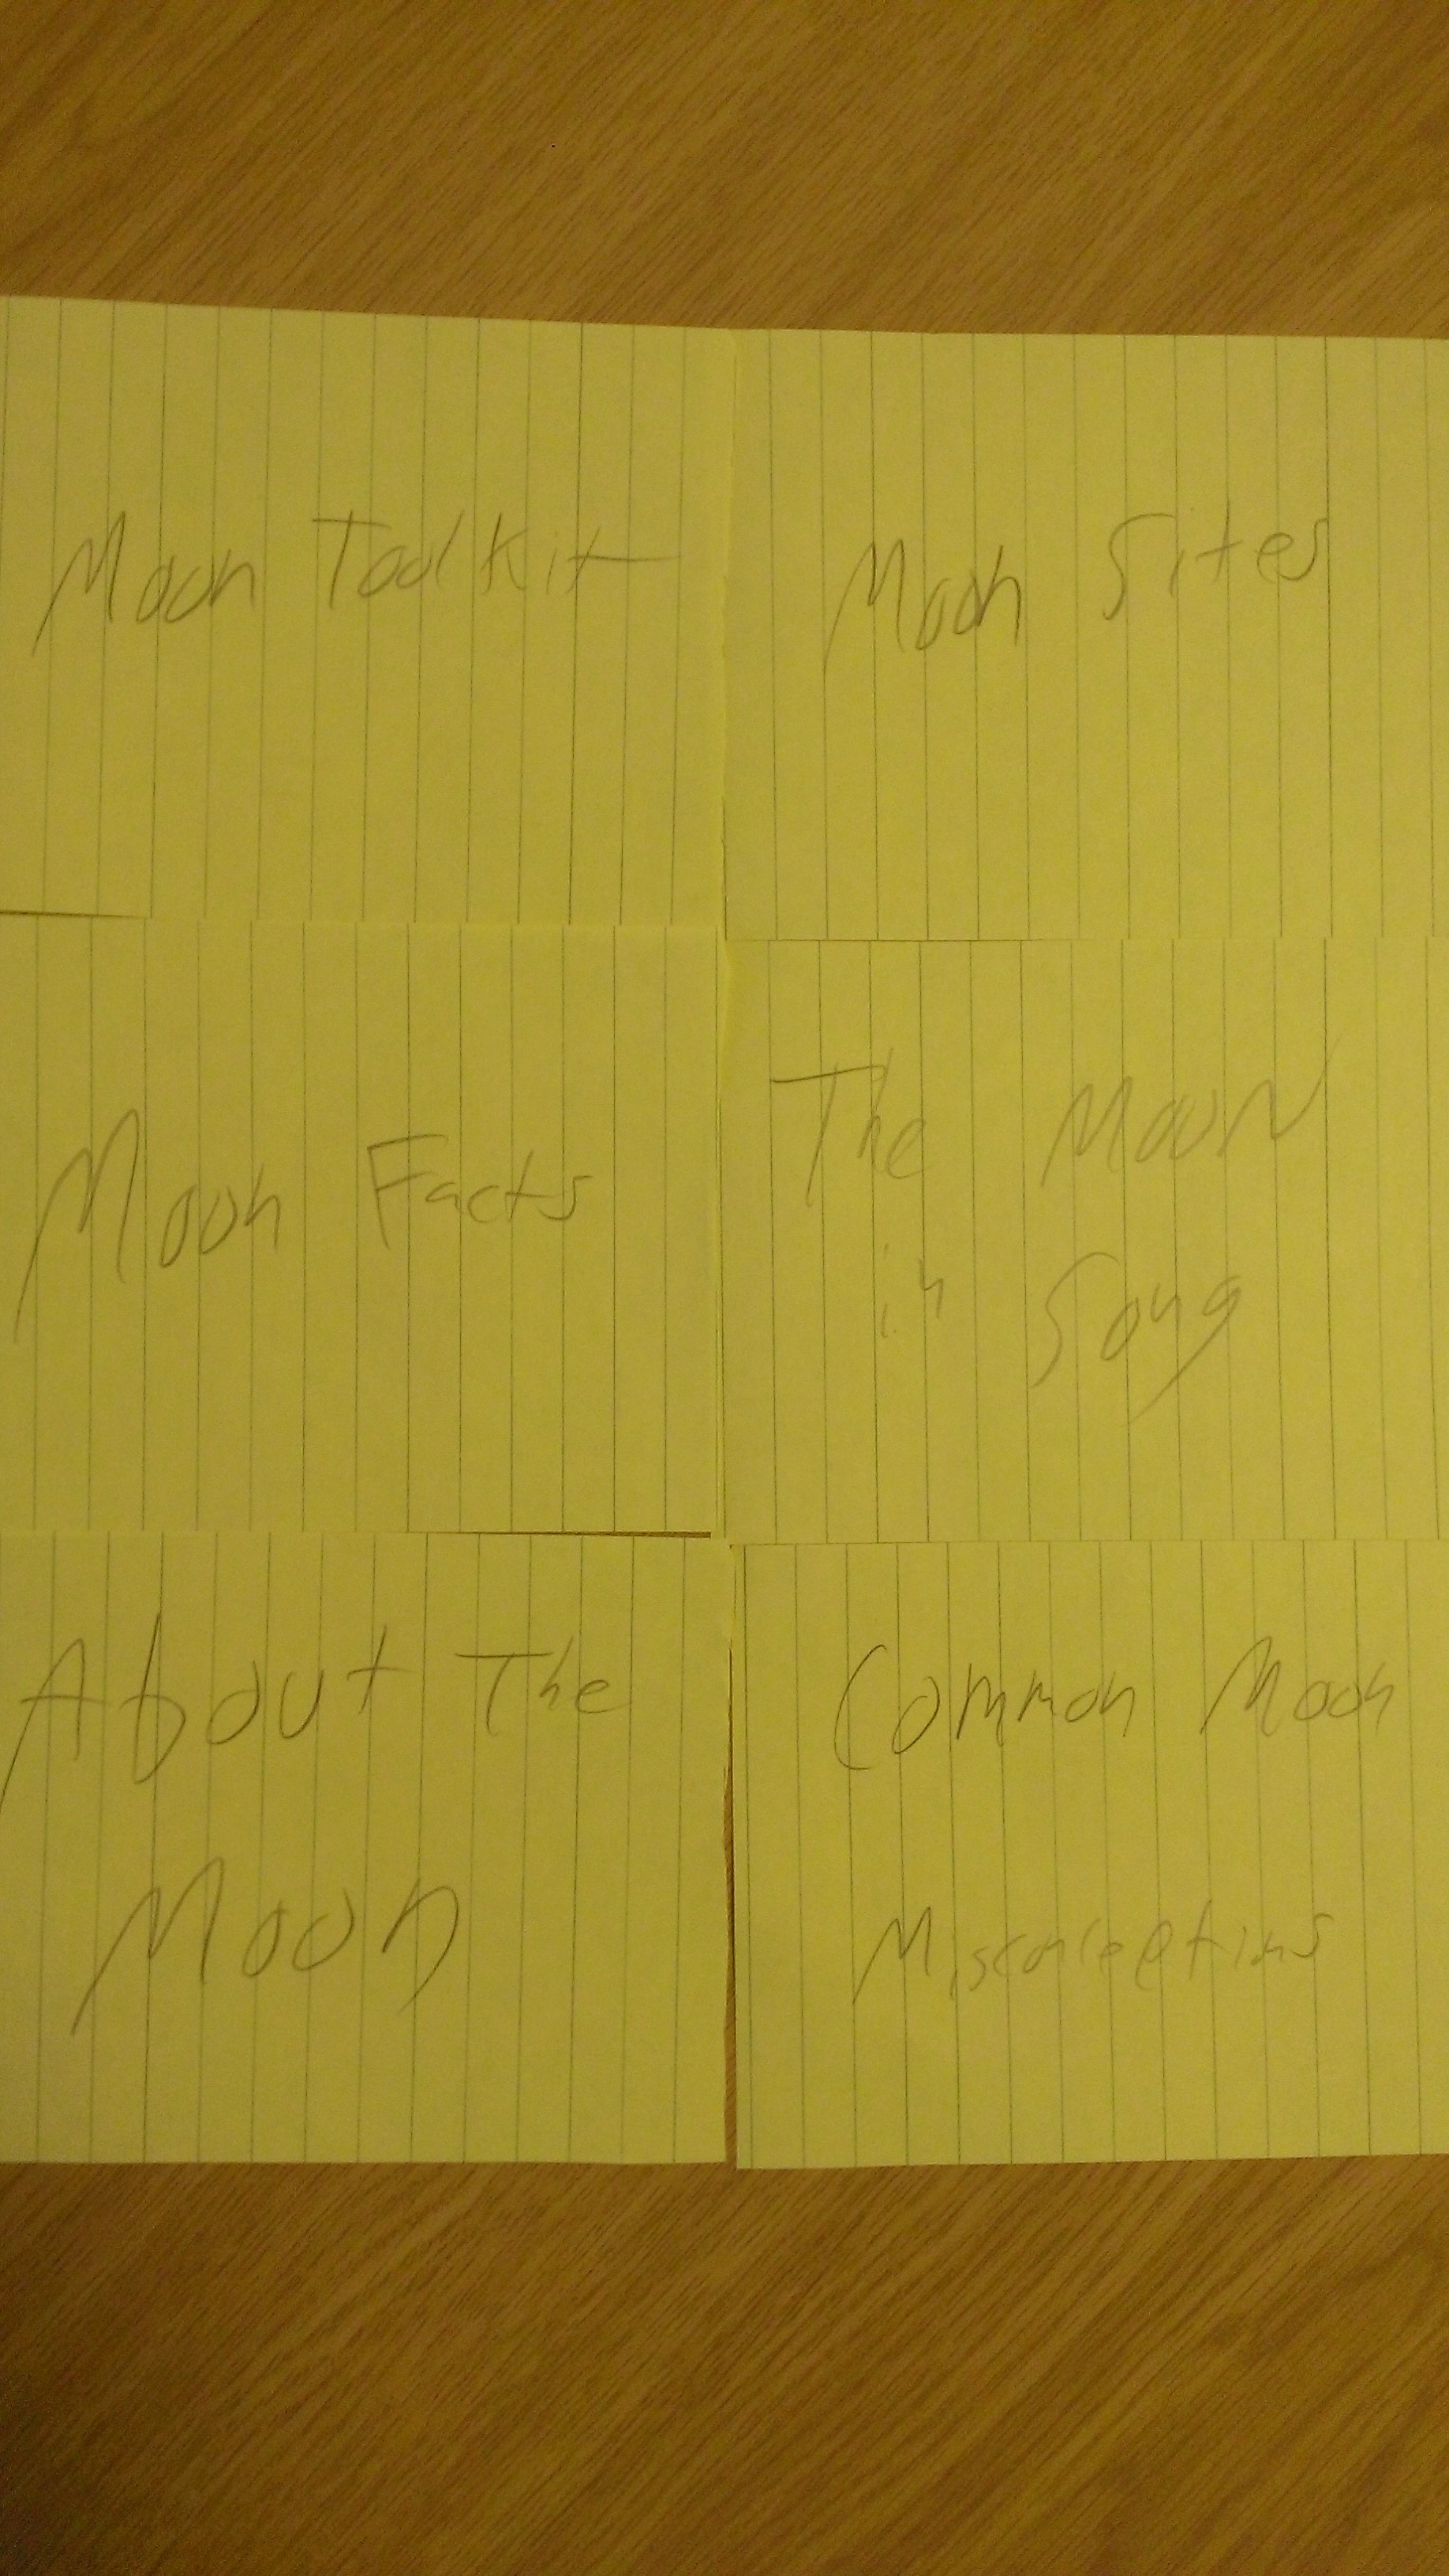 Moon Toolkit
Moon Sites
Moon Facts
The Moon
in Song
About The
Moon
Common Moon
Misconceptions